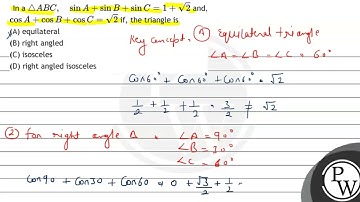 In a △ABC, sin A + sin B + sin C = 1 + √2 and,
cos A + cos B + cos C = √2 if, the triangle is
(A) equilateral
(B) right angled
(C) isosceles
(D) right angled isosceles
Key concept. (A) Equilateral triangle
∠A = ∠B = ∠C = 60°
Cos60° + Cos60° + Cos60° = √2
1/2 + 1/2 + 1/2 = 3/2 ≠ √2
(2) for right angle △. ∠A = 90°
∠B = 30°
∠C = 60°
Cos90 + Cos30 + Cos60 = 0 + √3/2 + 1/2 =